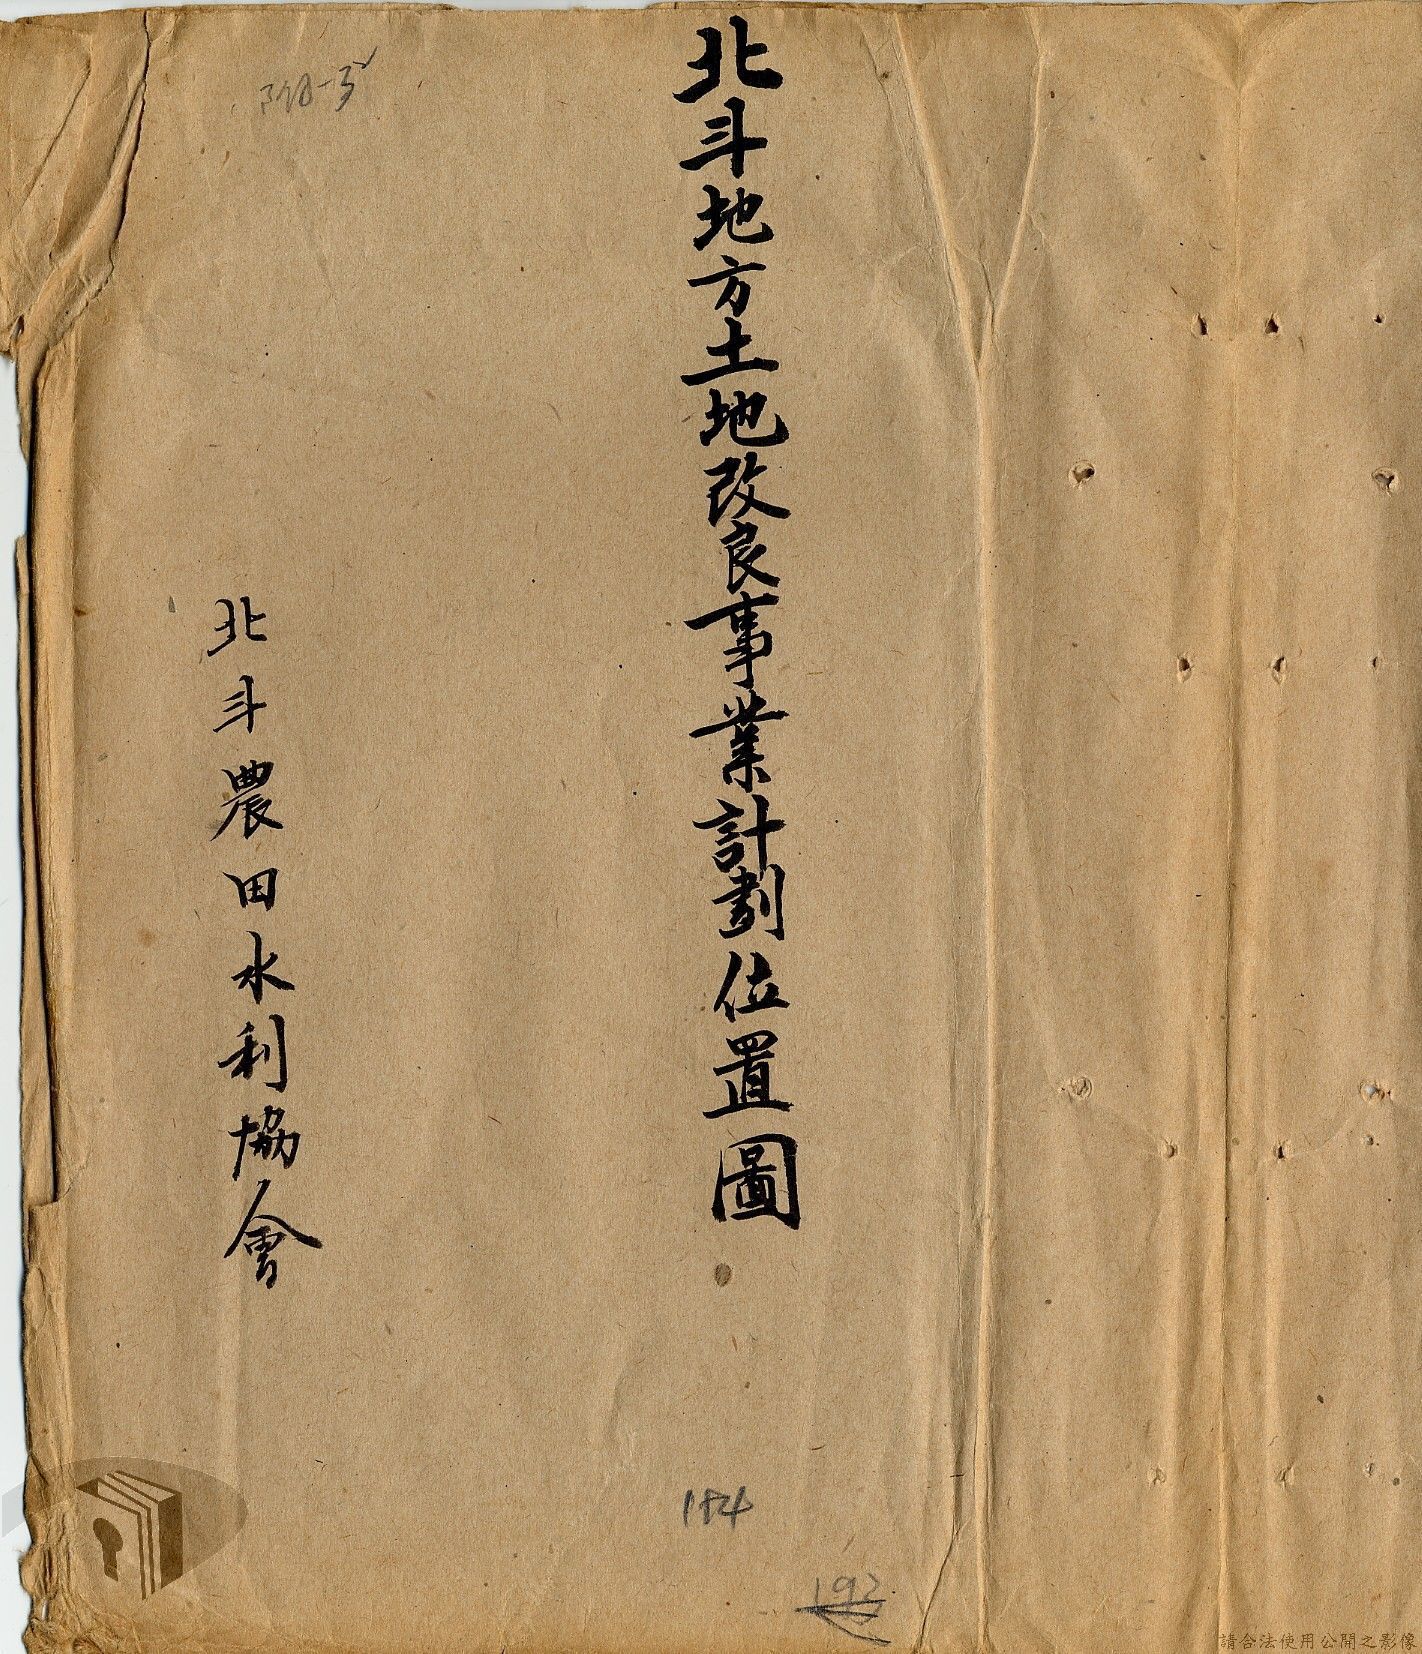 北斗地方土地改良事業計劃位置圖
北斗農田水利協會
184
192
請合法使用公開之影像